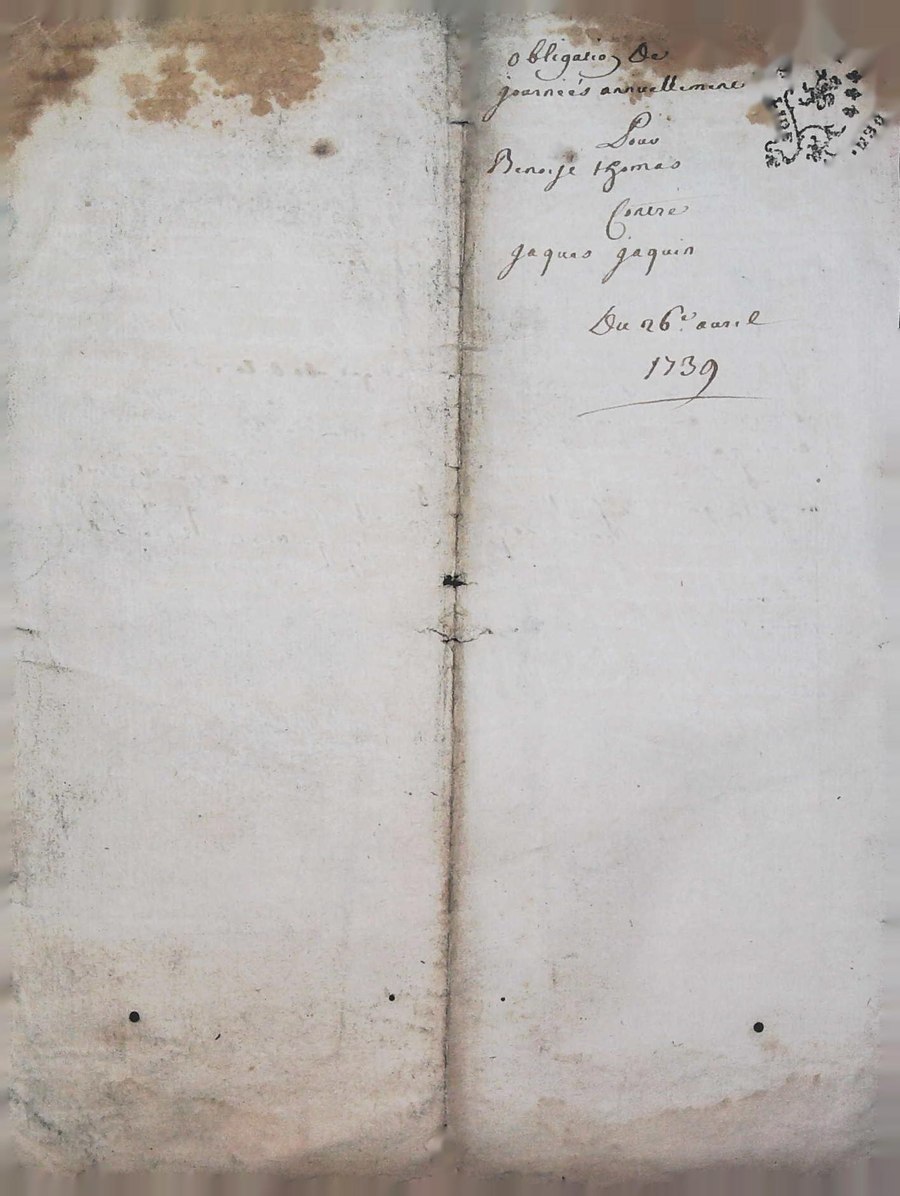 obligation De
journeés annuellement
Pour
Benoist thomas
Contre
jaques jaquin
Du 26.e auril
1739